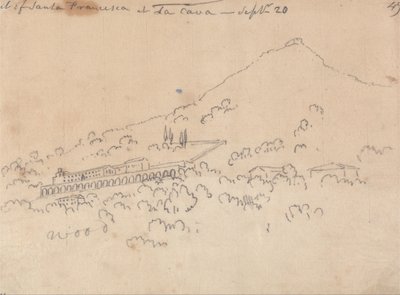 of Santa Francesca at La Cava — Sepbr 20
Wood